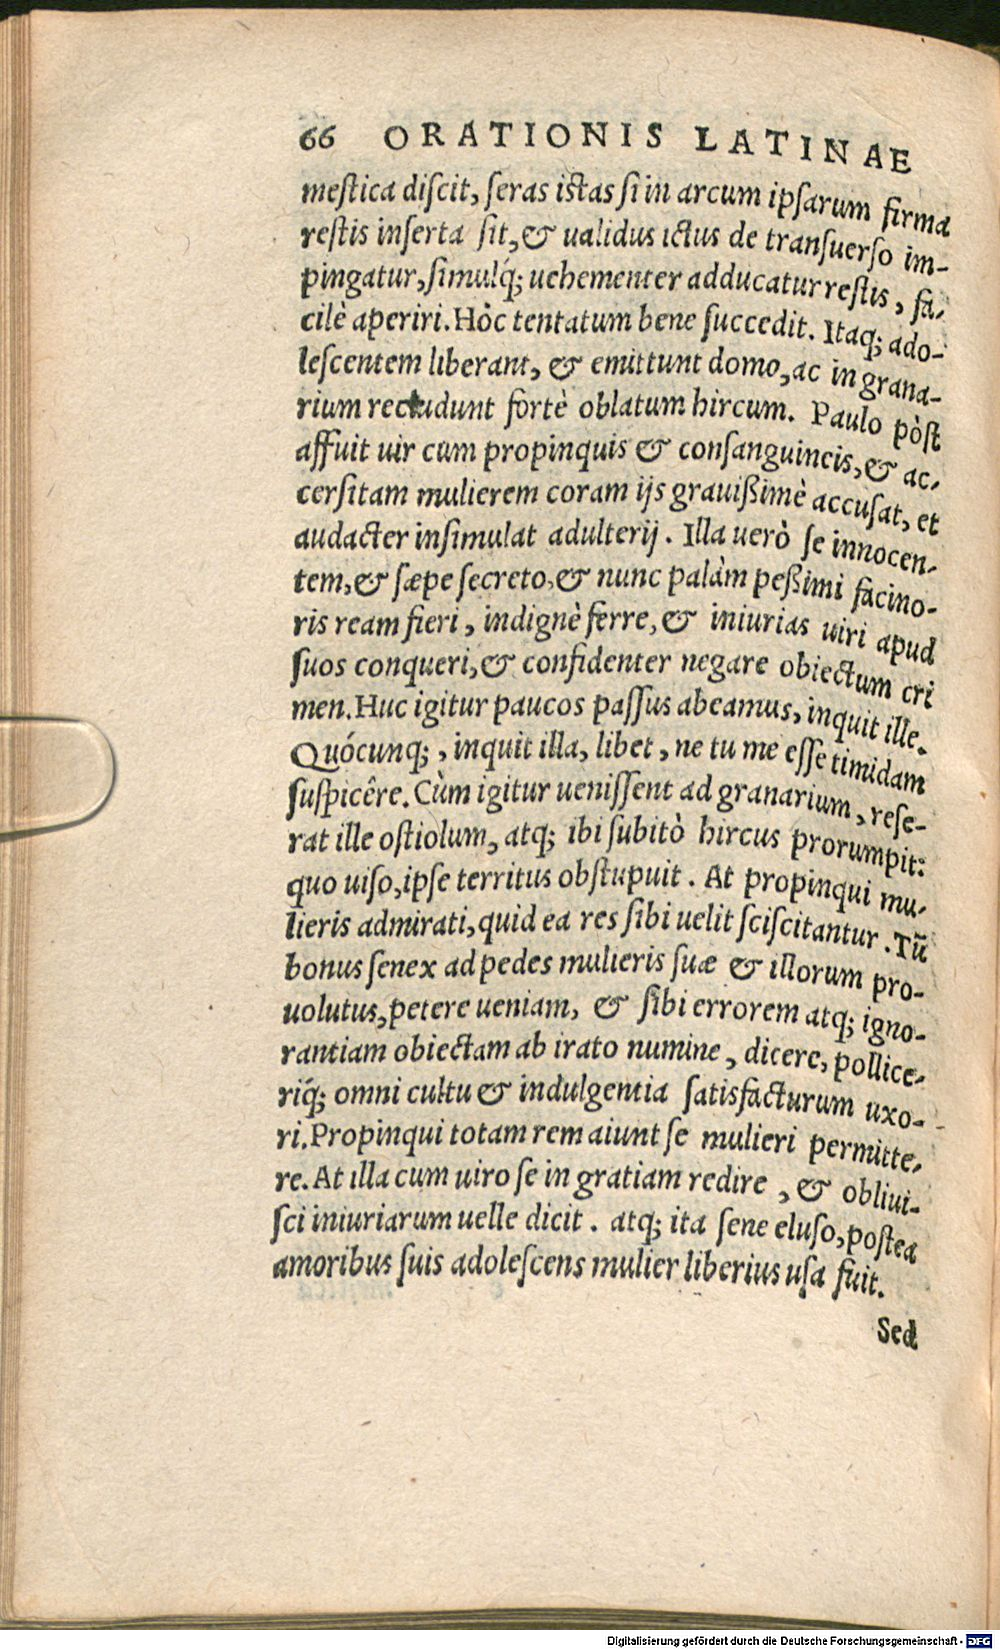 66 ORATIONIS LATINAE
mestica discit, seras istas si in arcum ipsarum firma
restis inserta sit, & ualidus ictus de transuerso im-
pingatur, simulq́; uehementer adducatur restis, fa-
cilè aperiri. Hòc tentatum bene succedit. Itaq; ado-
lescentem liberant, & emittunt domo, ac in grana-
rium recludunt fortè oblatum hircum. Paulo pòst
affuit uir cum propinquis & consanguineis, & ac-
cersitam mulierem coram ijs grauißimè accusat, et
audacter insimulat adulterij. Illa uerò se innocen-
tem, & sæpe secreto, & nunc palàm peßimi facino-
ris ream fieri, indignè ferre, & iniurias uiri apud
suos conqueri, & confidenter negare obiectum cri
men. Huc igitur paucos passus abeamus, inquit ille.
Quócunq;, inquit illa, libet, ne tu me esse timidam
suspicêre. Cùm igitur uenissent ad granarium, rese-
rat ille ostiolum, atq; ibi subitò hircus prorumpit:
quo uiso, ipse territus obstupuit. At propinqui mu-
lieris admirati, quid ea res sibi uelit sciscitantur. Tũ
bonus senex ad pedes mulieris suæ & illorum pro-
uolutus, petere ueniam, & sibi errorem atq; igno-
rantiam obiectam ab irato numine, dicere, pollice-
riq́; omni cultu & indulgentia satisfacturum uxo-
ri. Propinqui totam rem aiunt se mulieri permitte-
re. At illa cum uiro se in gratiam redire, & obliui-
sci iniuriarum uelle dicit. atq; ita sene eluso, postea
amoribus suis adolescens mulier liberius usa fuit.
Sed
Digitalisierung gefördert durch die Deutsche Forschungsgemeinschaft - DFG